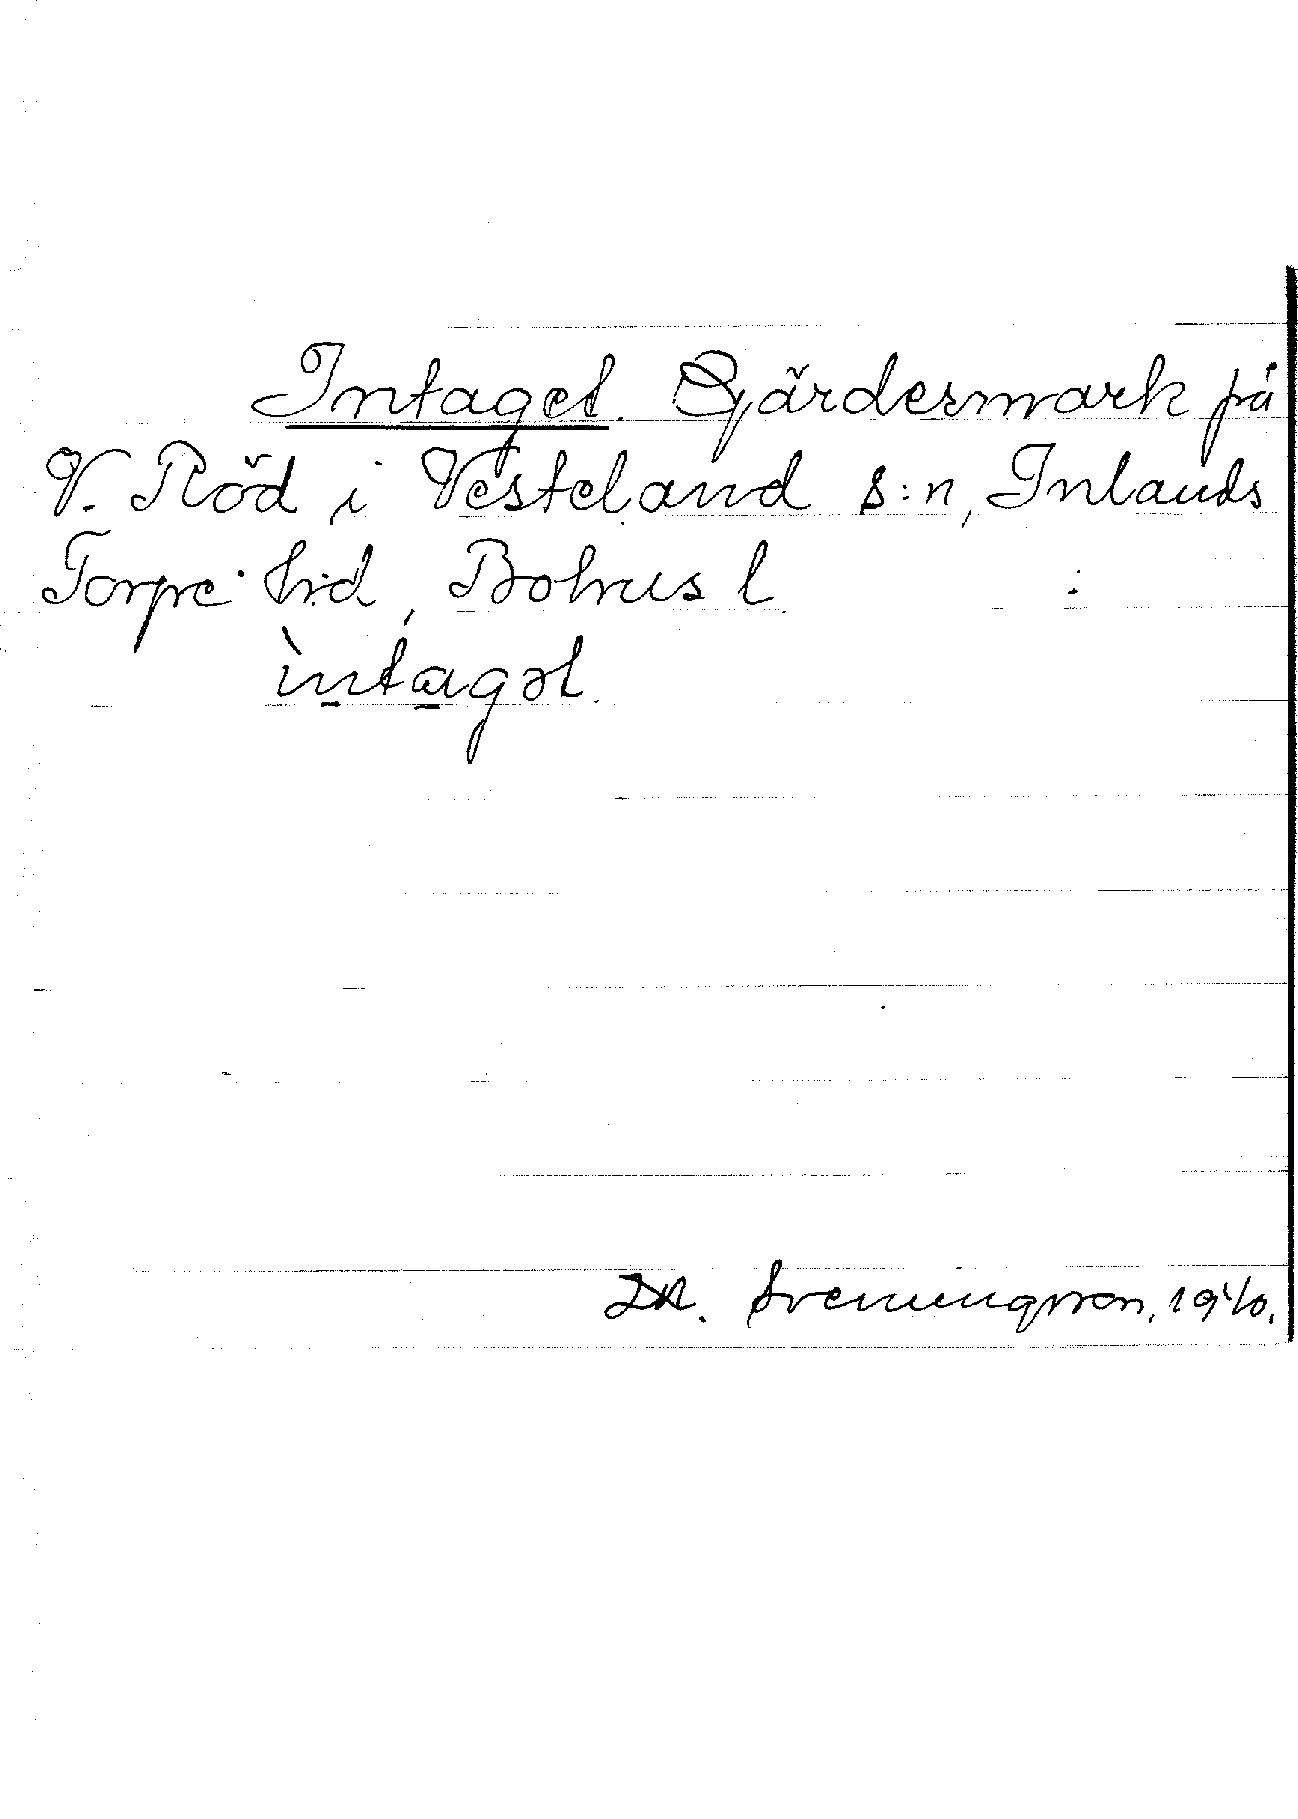 Intaget. Gärdesmark på
V. Röd i Vesteland s:n, Inlands
Torpe hd, Bohus l
ìntagət.
Svenungsson, 1910.